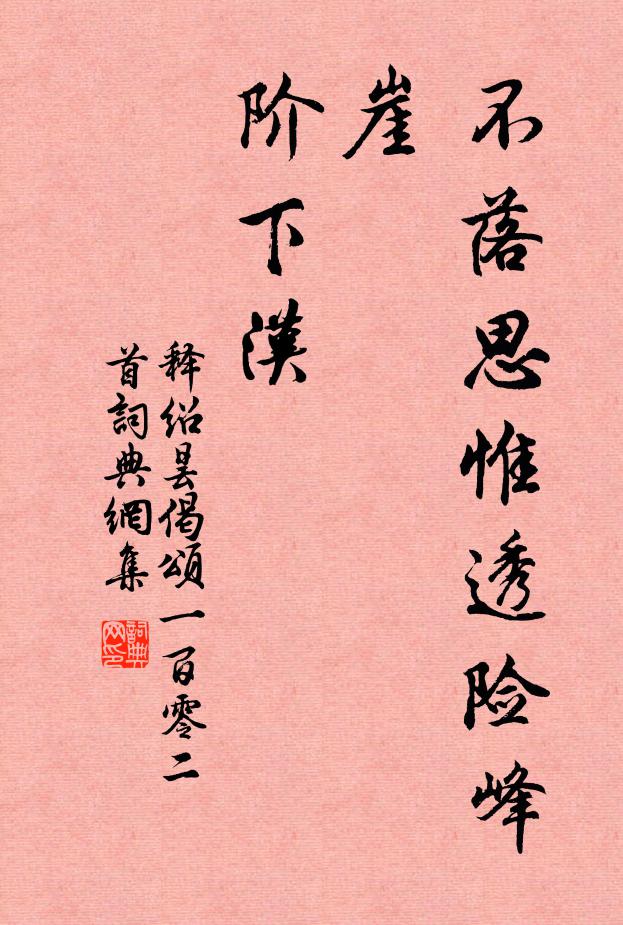 不落思惟透险峰
崖
阶下漠
释绍昙偈頌一百零二
首詞典網集
詞典
网印